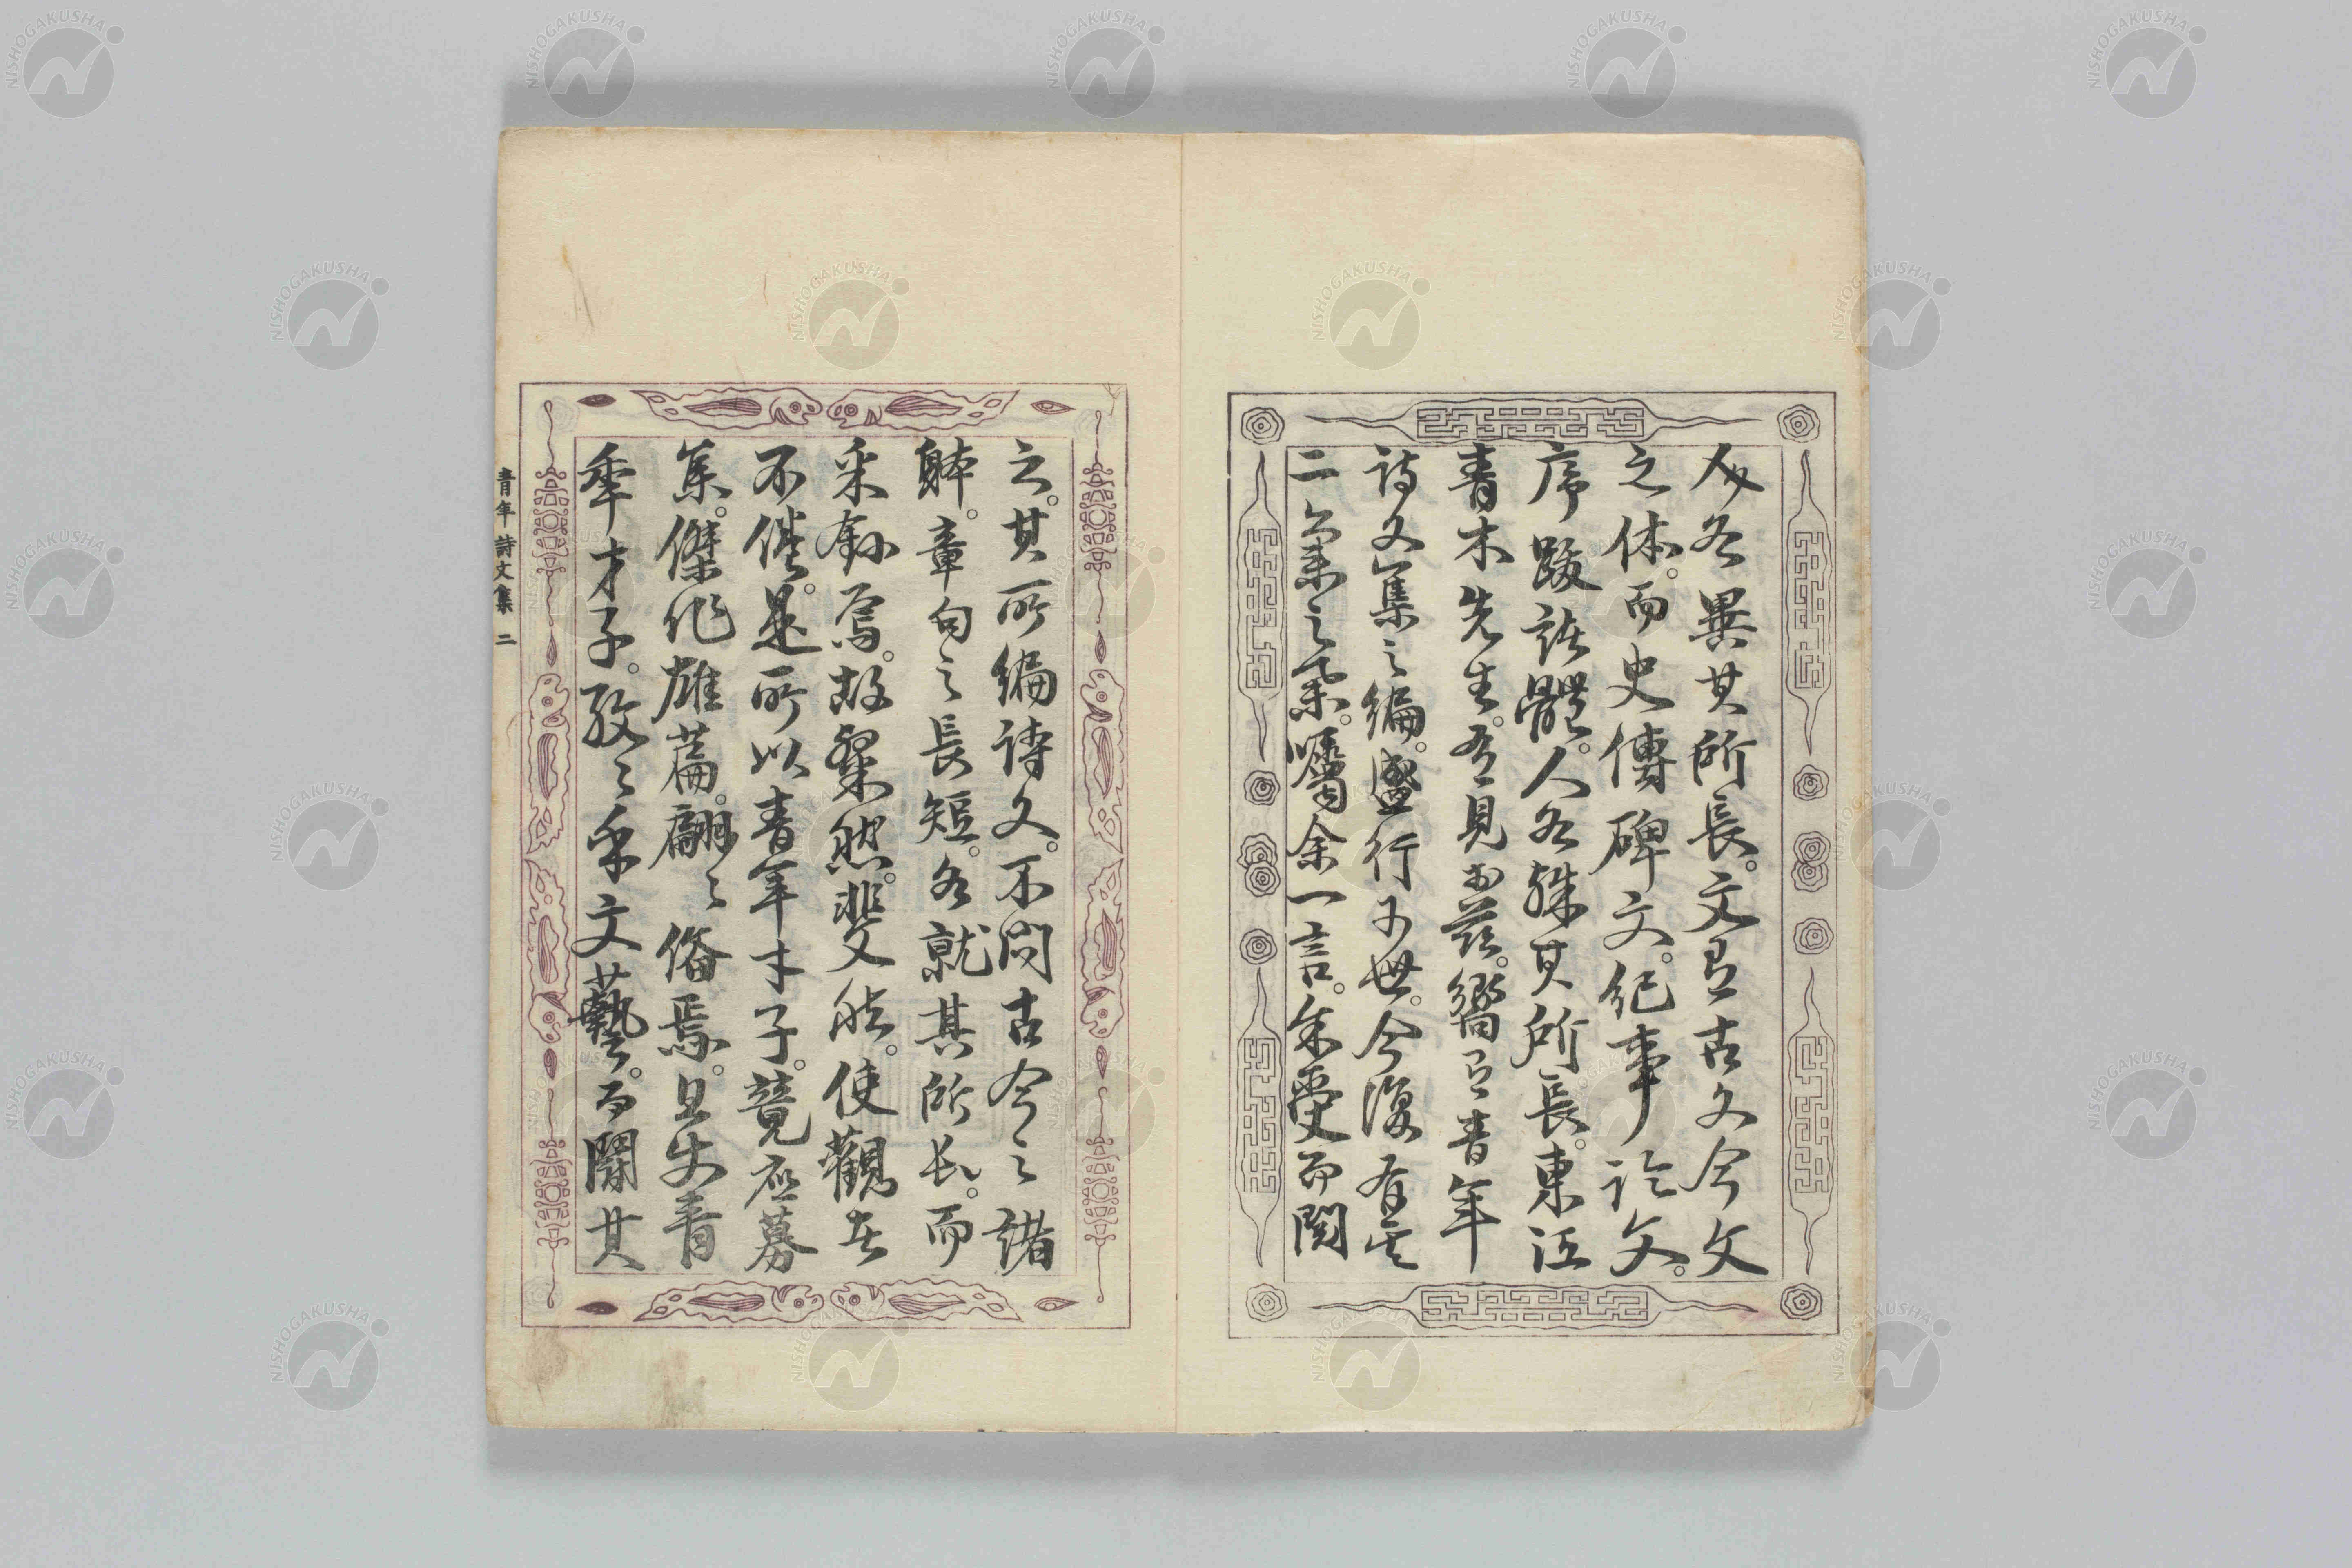 人各異其所長。文有古文今文
之体。而史傳碑文。紀事論文。
序跋諸體。人各殊其所長。東江
青木先生。有見于茲。嚮有青年
詩文集之編。盛行于世。今復有
二集之篹。囑余一言。余受而閱
之。其所編詩文。不問古今之諸
躰。章句之長短。各就其所長。而
采錄焉。故粲然。斐然。使觀者
不倦。是所以青年才子。競應募
集。傑作雄篇。翩々備焉。且夫青
年才子。孜々乎文藝。而闘其
青年詩文集 二
NISHOGAKUSHA